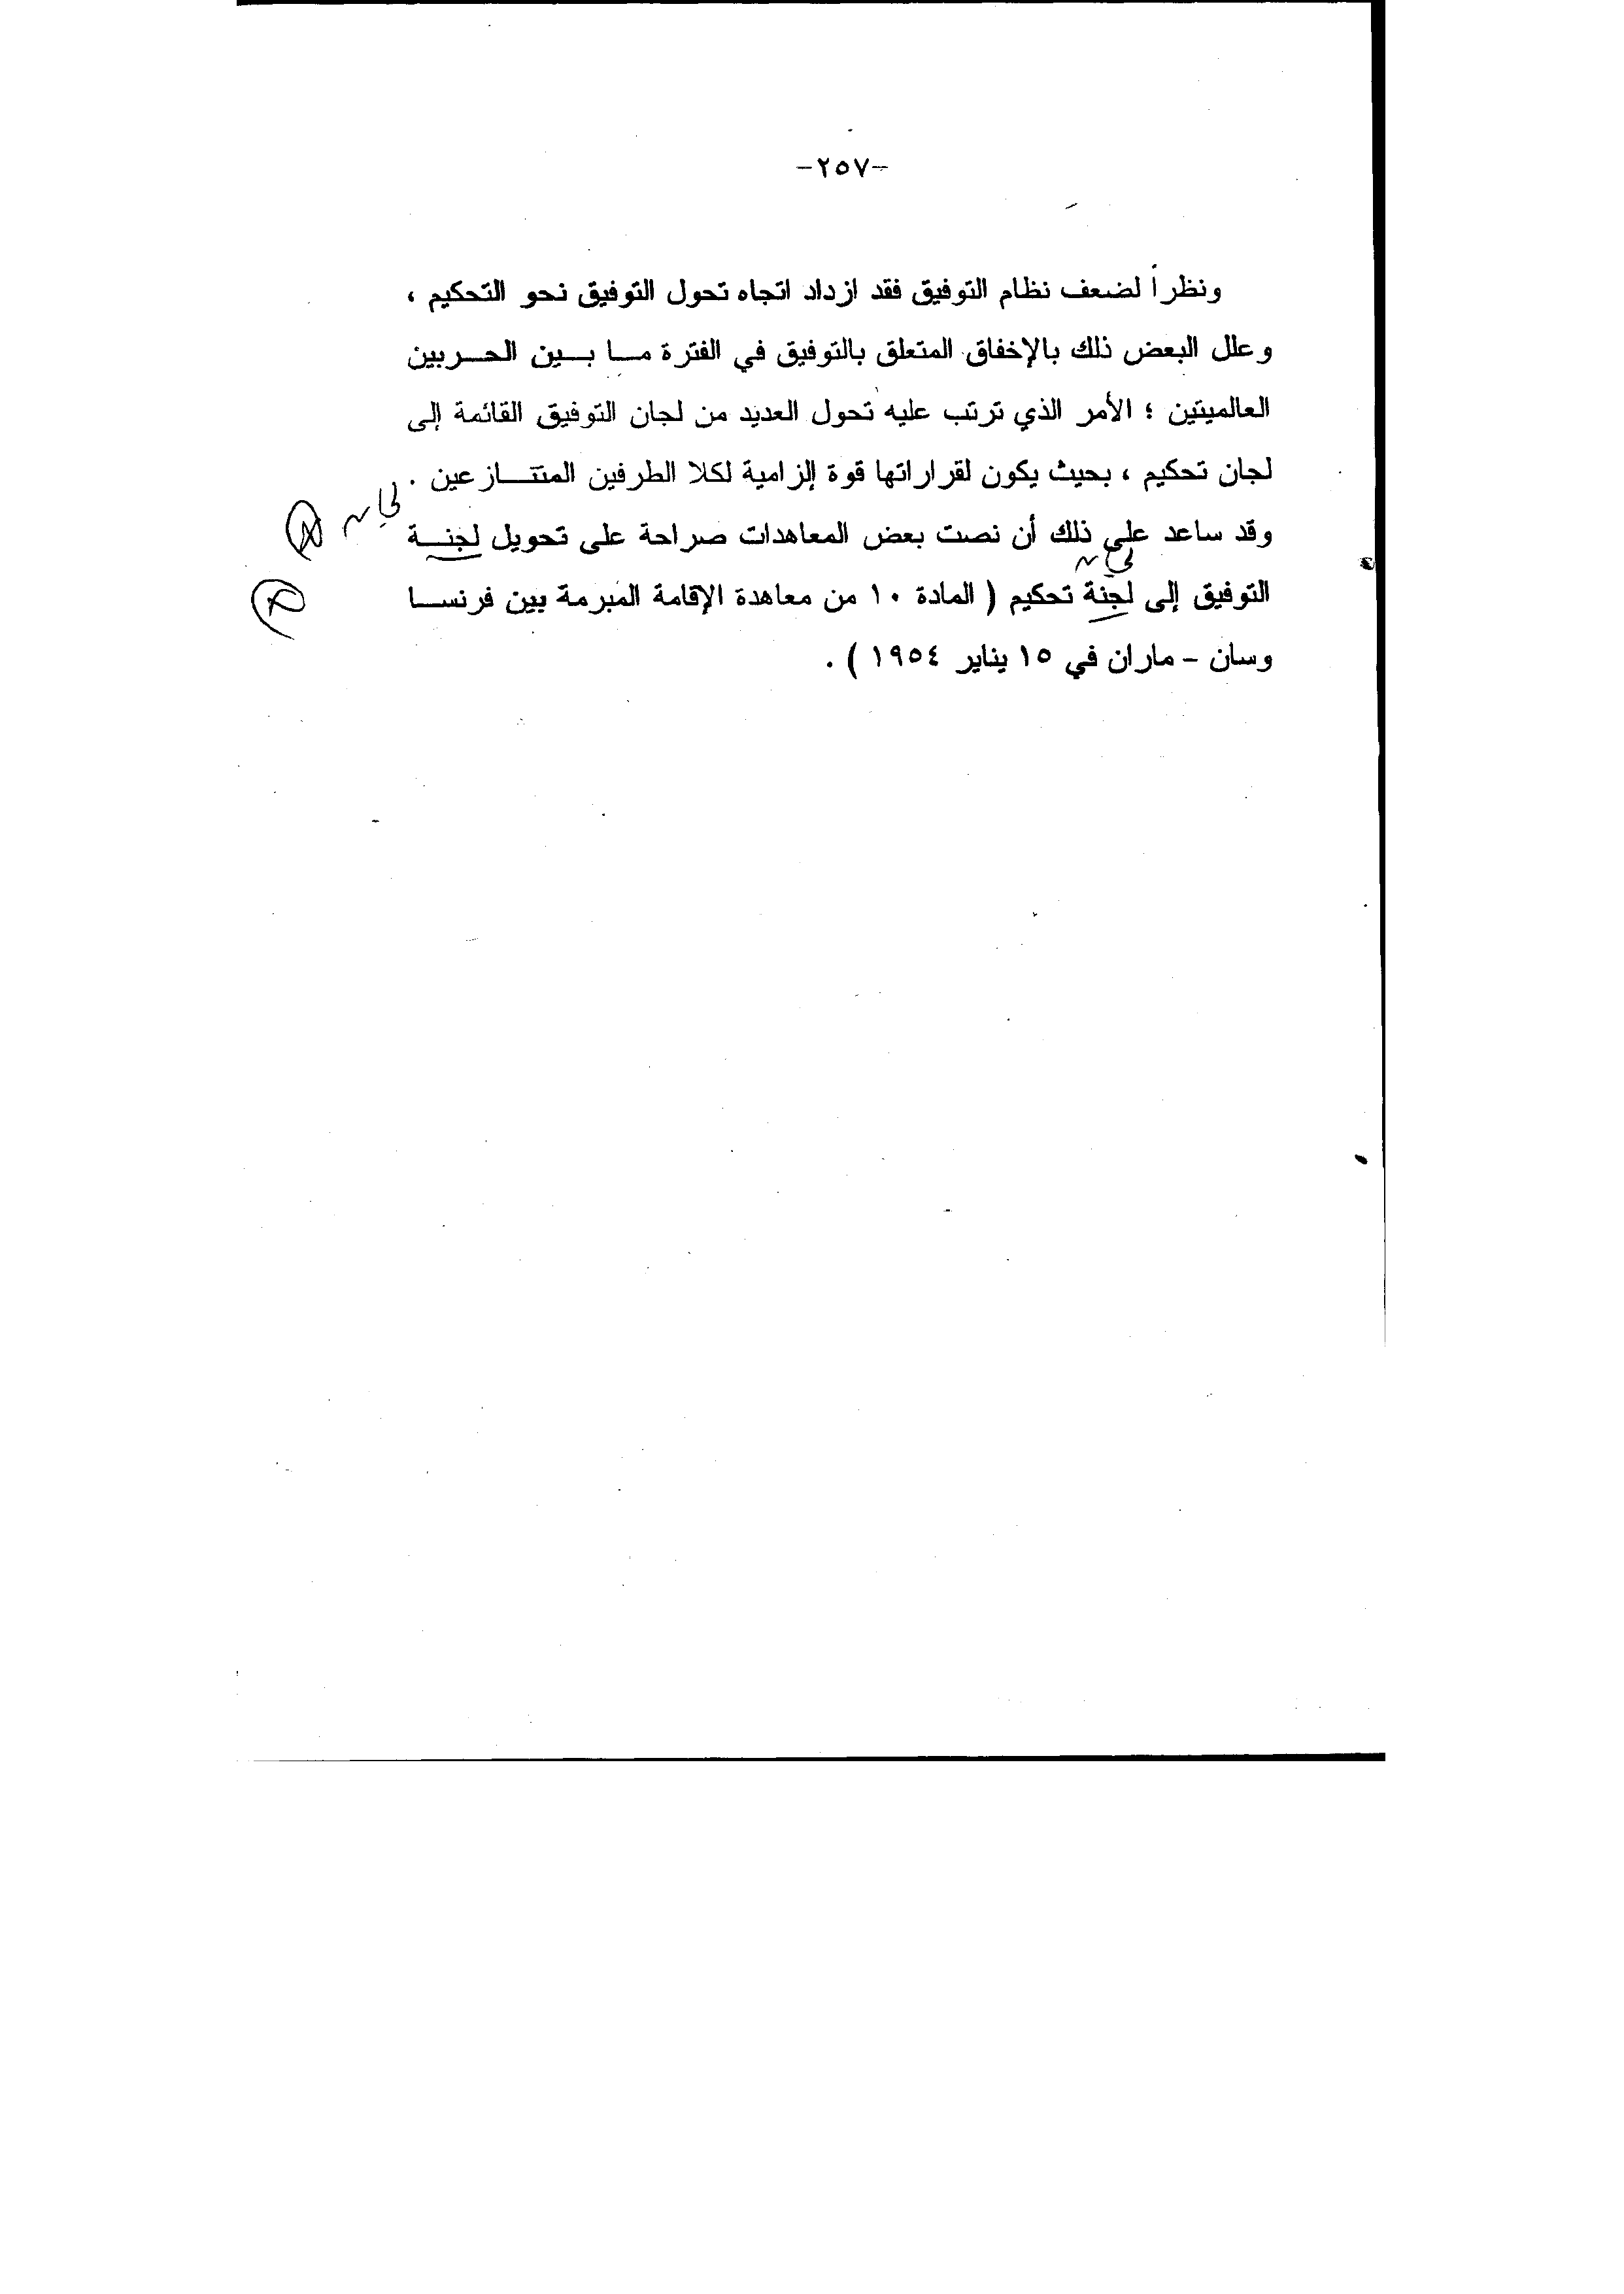 -٢٥٧-
ونظراً لضعف نظام التوفيق فقد ازداد اتجاه تحول التوفيق نحو التحكيم ،
وعلل البعض ذلك بالإخفاق المتعلق بالتوفيق في الفترة مـــا بـــين الحـــربين
العالميتين ؛ الأمر الذي ترتب عليه تحول العديد من لجان التوفيق القائمة إلى
لجان تحكيم ، بحيث يكون لقراراتها قوة إلزامية لكلا الطرفين المتنـــازعين .
وقد ساعد على ذلك أن نصت بعض المعاهدات صراحة على تحويل لجنـــة
التوفيق إلى لجنة تحكيم ( المادة ١٠ من معاهدة الإقامة المبرمة بين فرنســـا
وسان - ماران في ١٥ يناير ١٩٥٤ ) .